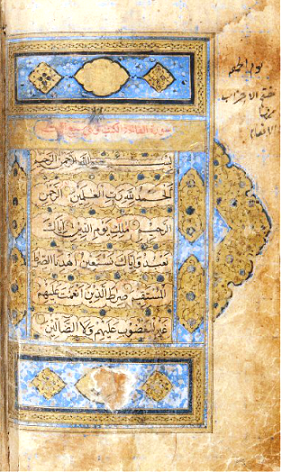 سورة الفاتحة الكتاب
بسم الله الرحمن الرحيم
الحمد لله رب العلمين الرحمن
الرحيم ملك يوم الدين اياك
نعبد واياك نستعين اهدنا الصراط
المستقيم صرط الذين انعمت عليهم
غير المغضوب عليهم ولا الضالين